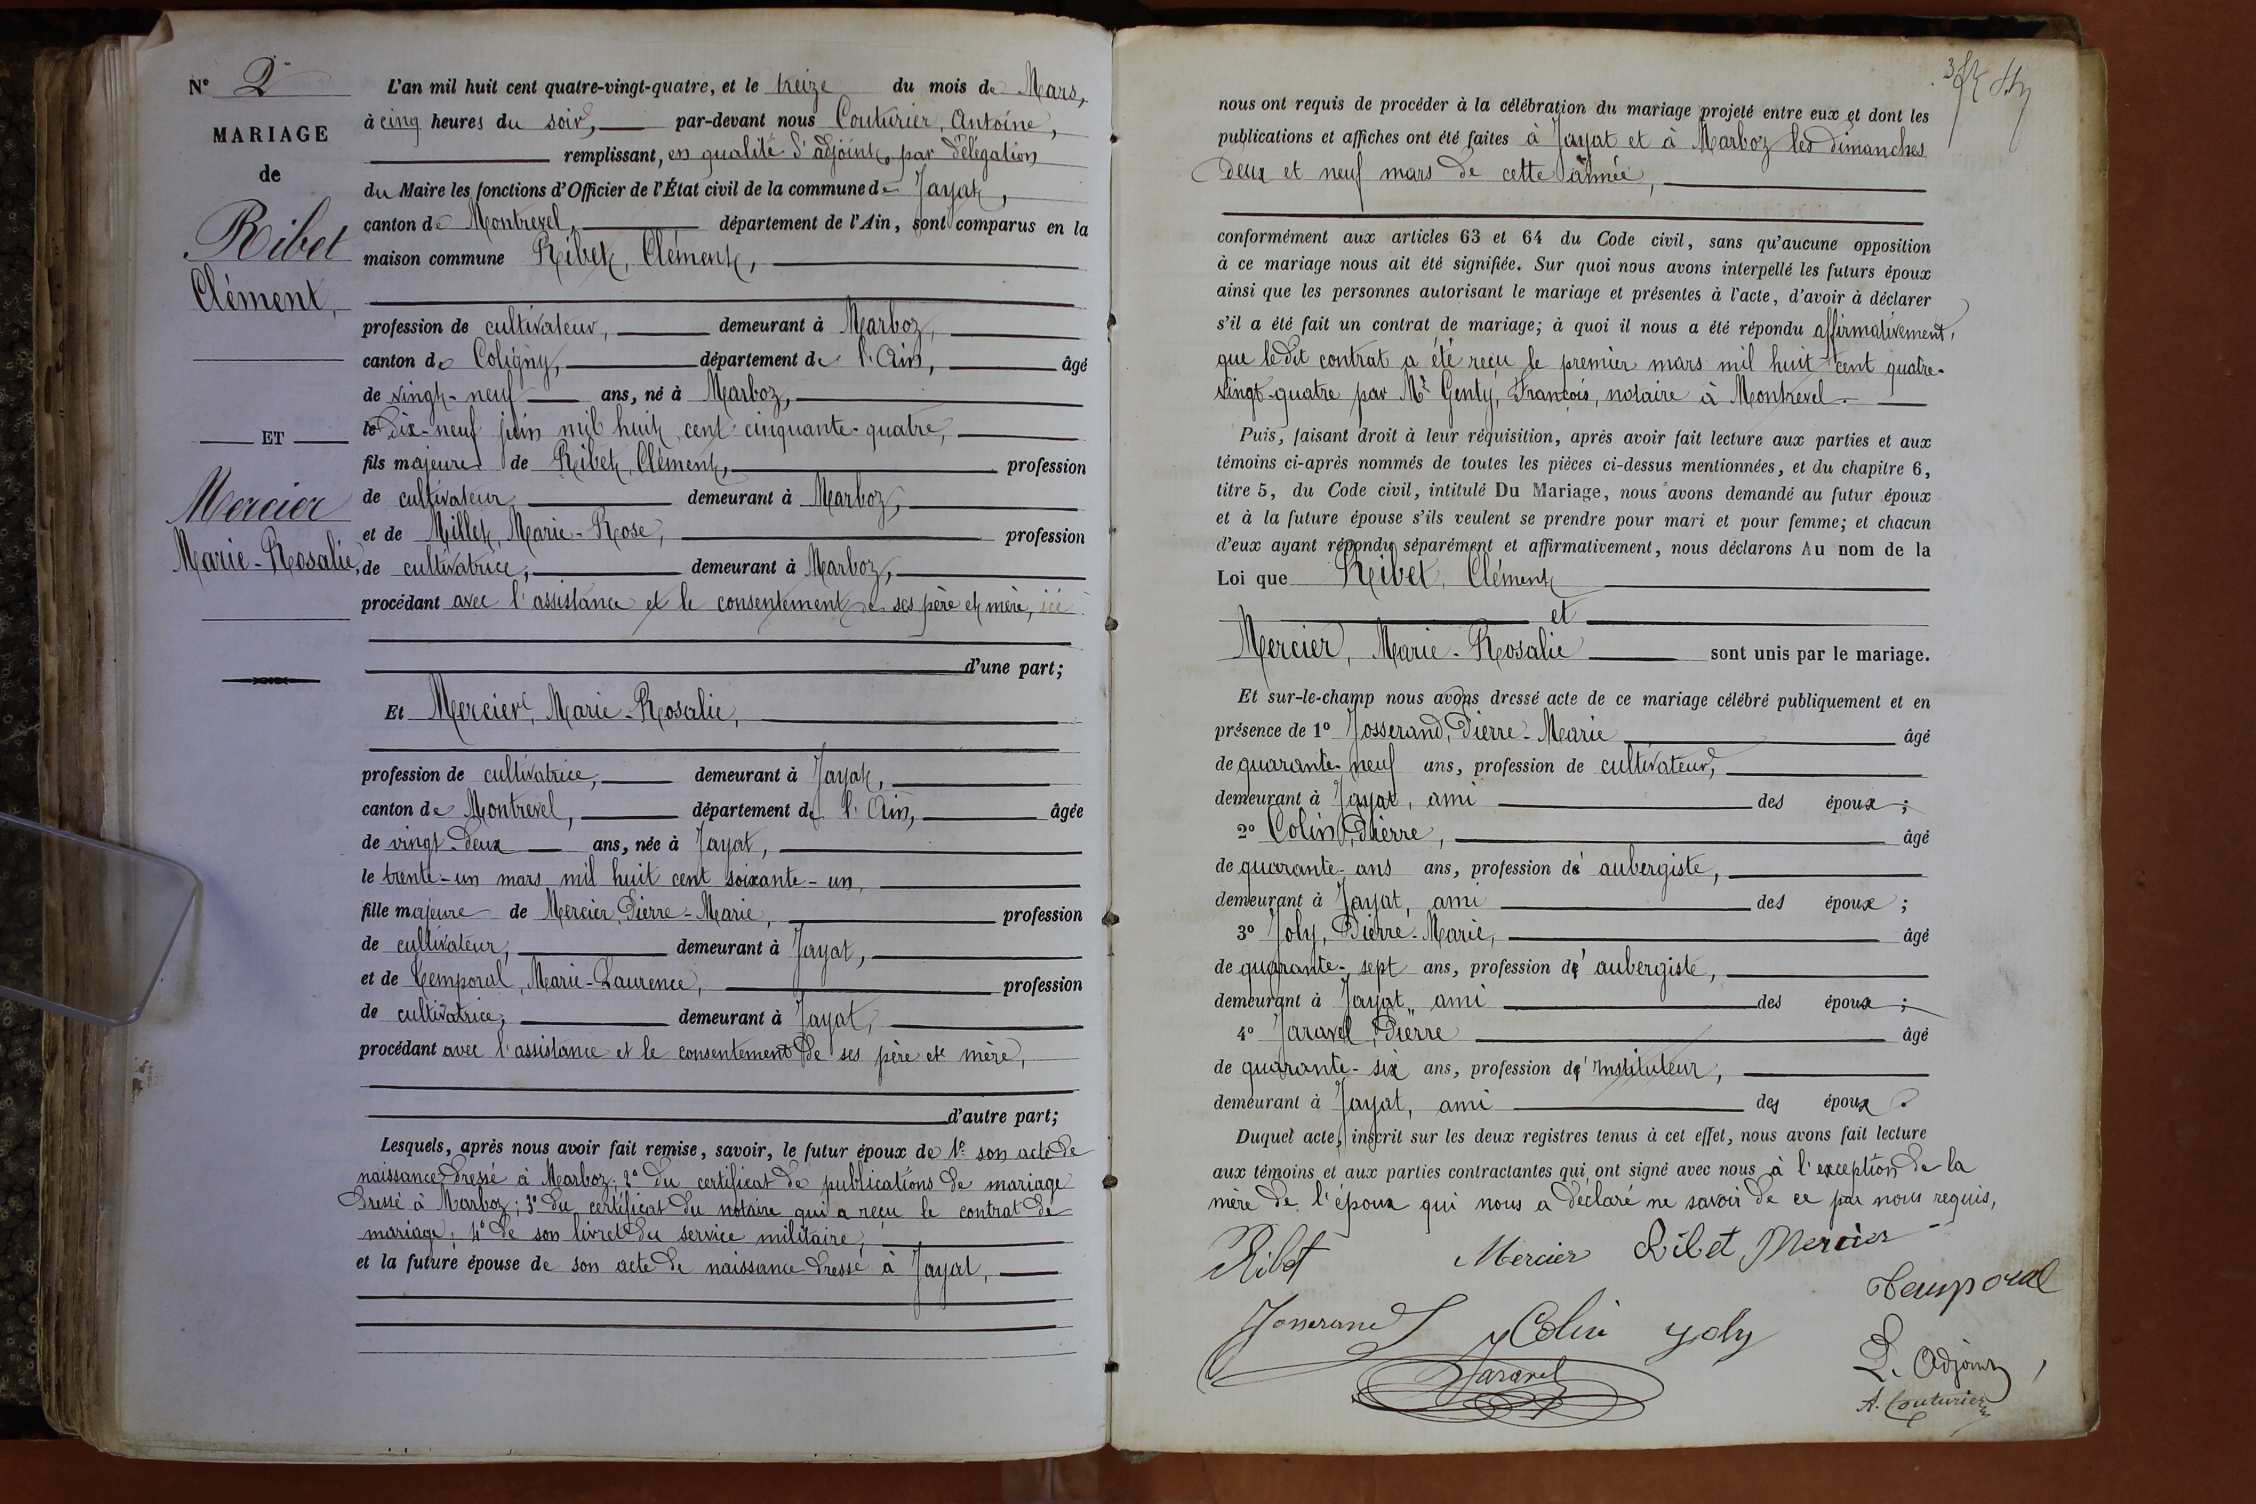 N° 2
MARIAGE
de
Ribet
Clément,
ET
Mercier
Marie-Rosalie,
L'an mil huit cent quatre-vingt-quatre, et le treize du mois de Mars,
à cinq heures du soir, par-devant nous Couturier, Antoine,
remplissant, en qualité d'adjoint, par délégation
du Maire les fonctions d'Officier de l'État civil de la commune de Jayat,
canton de Montrevel, département de l'Ain, sont comparus en la
maison commune Ribet, Clément,
profession de cultivateur, demeurant à Marboz,
canton de Coligny, département de l'Ain, âgé
de vingt-neuf ans, né à Marboz,
le dix-neuf juin mil huit cent cinquante-quatre,
fils majeur de Ribet, Clément, profession
de cultivateur, demeurant à Marboz,
et de Millet, Marie-Rose, profession
de cultivatrice, demeurant à Marboz,
procédant avec l'assistance et le consentement de ses père et mère, ici
d'une part;
Et Mercier, Marie-Rosalie,
profession de cultivatrice, demeurant à Jayat,
canton de Montrevel, département de l'Ain, âgée
de vingt-deux ans, née à Jayat,
le trente-un mars mil huit cent soixante-un,
fille majeure de Mercier, Pierre-Marie, profession
de cultivateur, demeurant à Jayat,
et de Temporal, Marie-Laurence, profession
de cultivatrice, demeurant à Jayat,
procédant avec l'assistance et le consentement de ses père et mère,
d'autre part;
Lesquels, après nous avoir fait remise, savoir, le futur époux de 1° son acte de
naissance dressé à Marboz; 2° du certificat de publications de mariage
dressé à Marboz; 3° du certificat du notaire qui a reçu le contrat de
mariage; 4° de son livret du service militaire,
et la future épouse de son acte de naissance dressé à Jayat,
nous ont requis de procéder à la célébration du mariage projeté entre eux et dont les
publications et affiches ont été faites à Jayat et à Marboz les dimanches
deux et neuf mars de cette année,
conformément aux articles 63 et 64 du Code civil, sans qu'aucune opposition
à ce mariage nous ait été signifiée. Sur quoi nous avons interpellé les futurs époux
ainsi que les personnes autorisant le mariage et présentes à l'acte, d'avoir à déclarer
s'il a été fait un contrat de mariage; à quoi il nous a été répondu affirmativement,
que le dit contrat a été reçu le premier mars mil huit cent quatre-
vingt-quatre par Mr Genty, François, notaire à Montrevel.
Puis, faisant droit à leur réquisition, après avoir fait lecture aux parties et aux
témoins ci-après nommés de toutes les pièces ci-dessus mentionnées, et du chapitre 6,
titre 5, du Code civil, intitulé Du Mariage, nous avons demandé au futur époux
et à la future épouse s'ils veulent se prendre pour mari et pour femme; et chacun
d'eux ayant répondu séparément et affirmativement, nous déclarons Au nom de la
Loi que Ribet, Clément
et
Mercier, Marie-Rosalie sont unis par le mariage.
Et sur-le-champ nous avons dressé acte de ce mariage célébré publiquement et en
présence de 1° Josserand, Pierre-Marie âgé
de quarante-neuf ans, profession de cultivateur,
demeurant à Jayat, ami des époux;
2° Colin, Pierre, âgé
de quarante-ans ans, profession d' aubergiste,
demeurant à Jayat, ami des époux;
3° Joly, Pierre-Marie, âgé
de quarante-sept ans, profession d' aubergiste,
demeurant à Jayat, ami des époux;
4° Jaravel, Pierre âgé
de quarante-six ans, profession d' instituteur,
demeurant à Jayat, ami des époux.
Duquel acte, inscrit sur les deux registres tenus à cet effet, nous avons fait lecture
aux témoins et aux parties contractantes qui ont signé avec nous à l'exception de la
mère de l'époux qui nous a déclaré ne savoir de ce par nous requis,
Ribet Mercier Ribet Mercier
Temporal
Josserand Colin Joly
Jaravel
L. Adjoint
A. Couturier